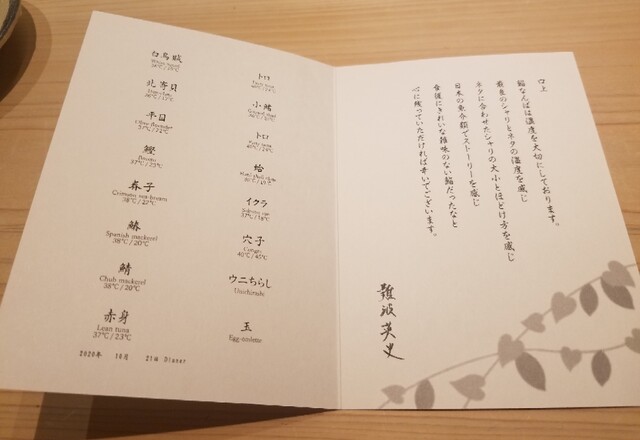 白烏賊
北寄貝
平目
Olive flounder
37℃/21℃
鰹
Bonito
37℃/23℃
春子
Crimson sea-bream
38℃/22℃
鰆
Spanish mackerel
38℃/20℃
鯖
Chub mackerel
38℃/20℃
赤身
Lean tuna
37℃/23℃
トロ
小鰭
トロ
蛤
イクラ
穴子
Conger
40℃/40℃
ウニちらし
Unichirashi
玉
Egg-omlette
2020年 10月 21日 Dinner
口上
鮨なんばは温度を大切にしております。
最良のシャリとネタの温度を感じ
ネタに合わせたシャリの大小とほどけ方を感じ
日本の魚介類でストーリーを感じ
食後にきれいな雑味のない鮨だったなと
心に残っていただければ幸いでございます。
難波英史